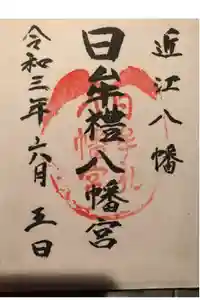 近江八幡
日牟禮八幡宮
令和三年六月五日